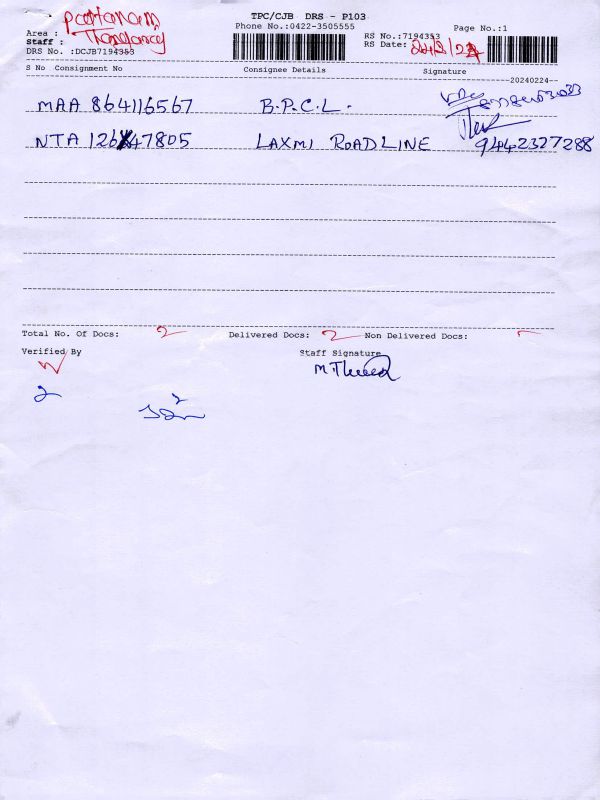 TPC/CJB DRS - P103
Phone No.:0422-3505555
Page No.:1
Area :
Staff :
DRS No. :DCJB7194353
RS No.:7194353
RS Date: 24/2/24
S No Consignment No Consignee Details Signature
20240224
MAA 864116567 B.P.C.L.
NTA 126 47805 LAXMI ROADLINE 9442327288
Total No. Of Docs: 2 Delivered Docs: 2 Non Delivered Docs: -
Verified By Staff Signature
2